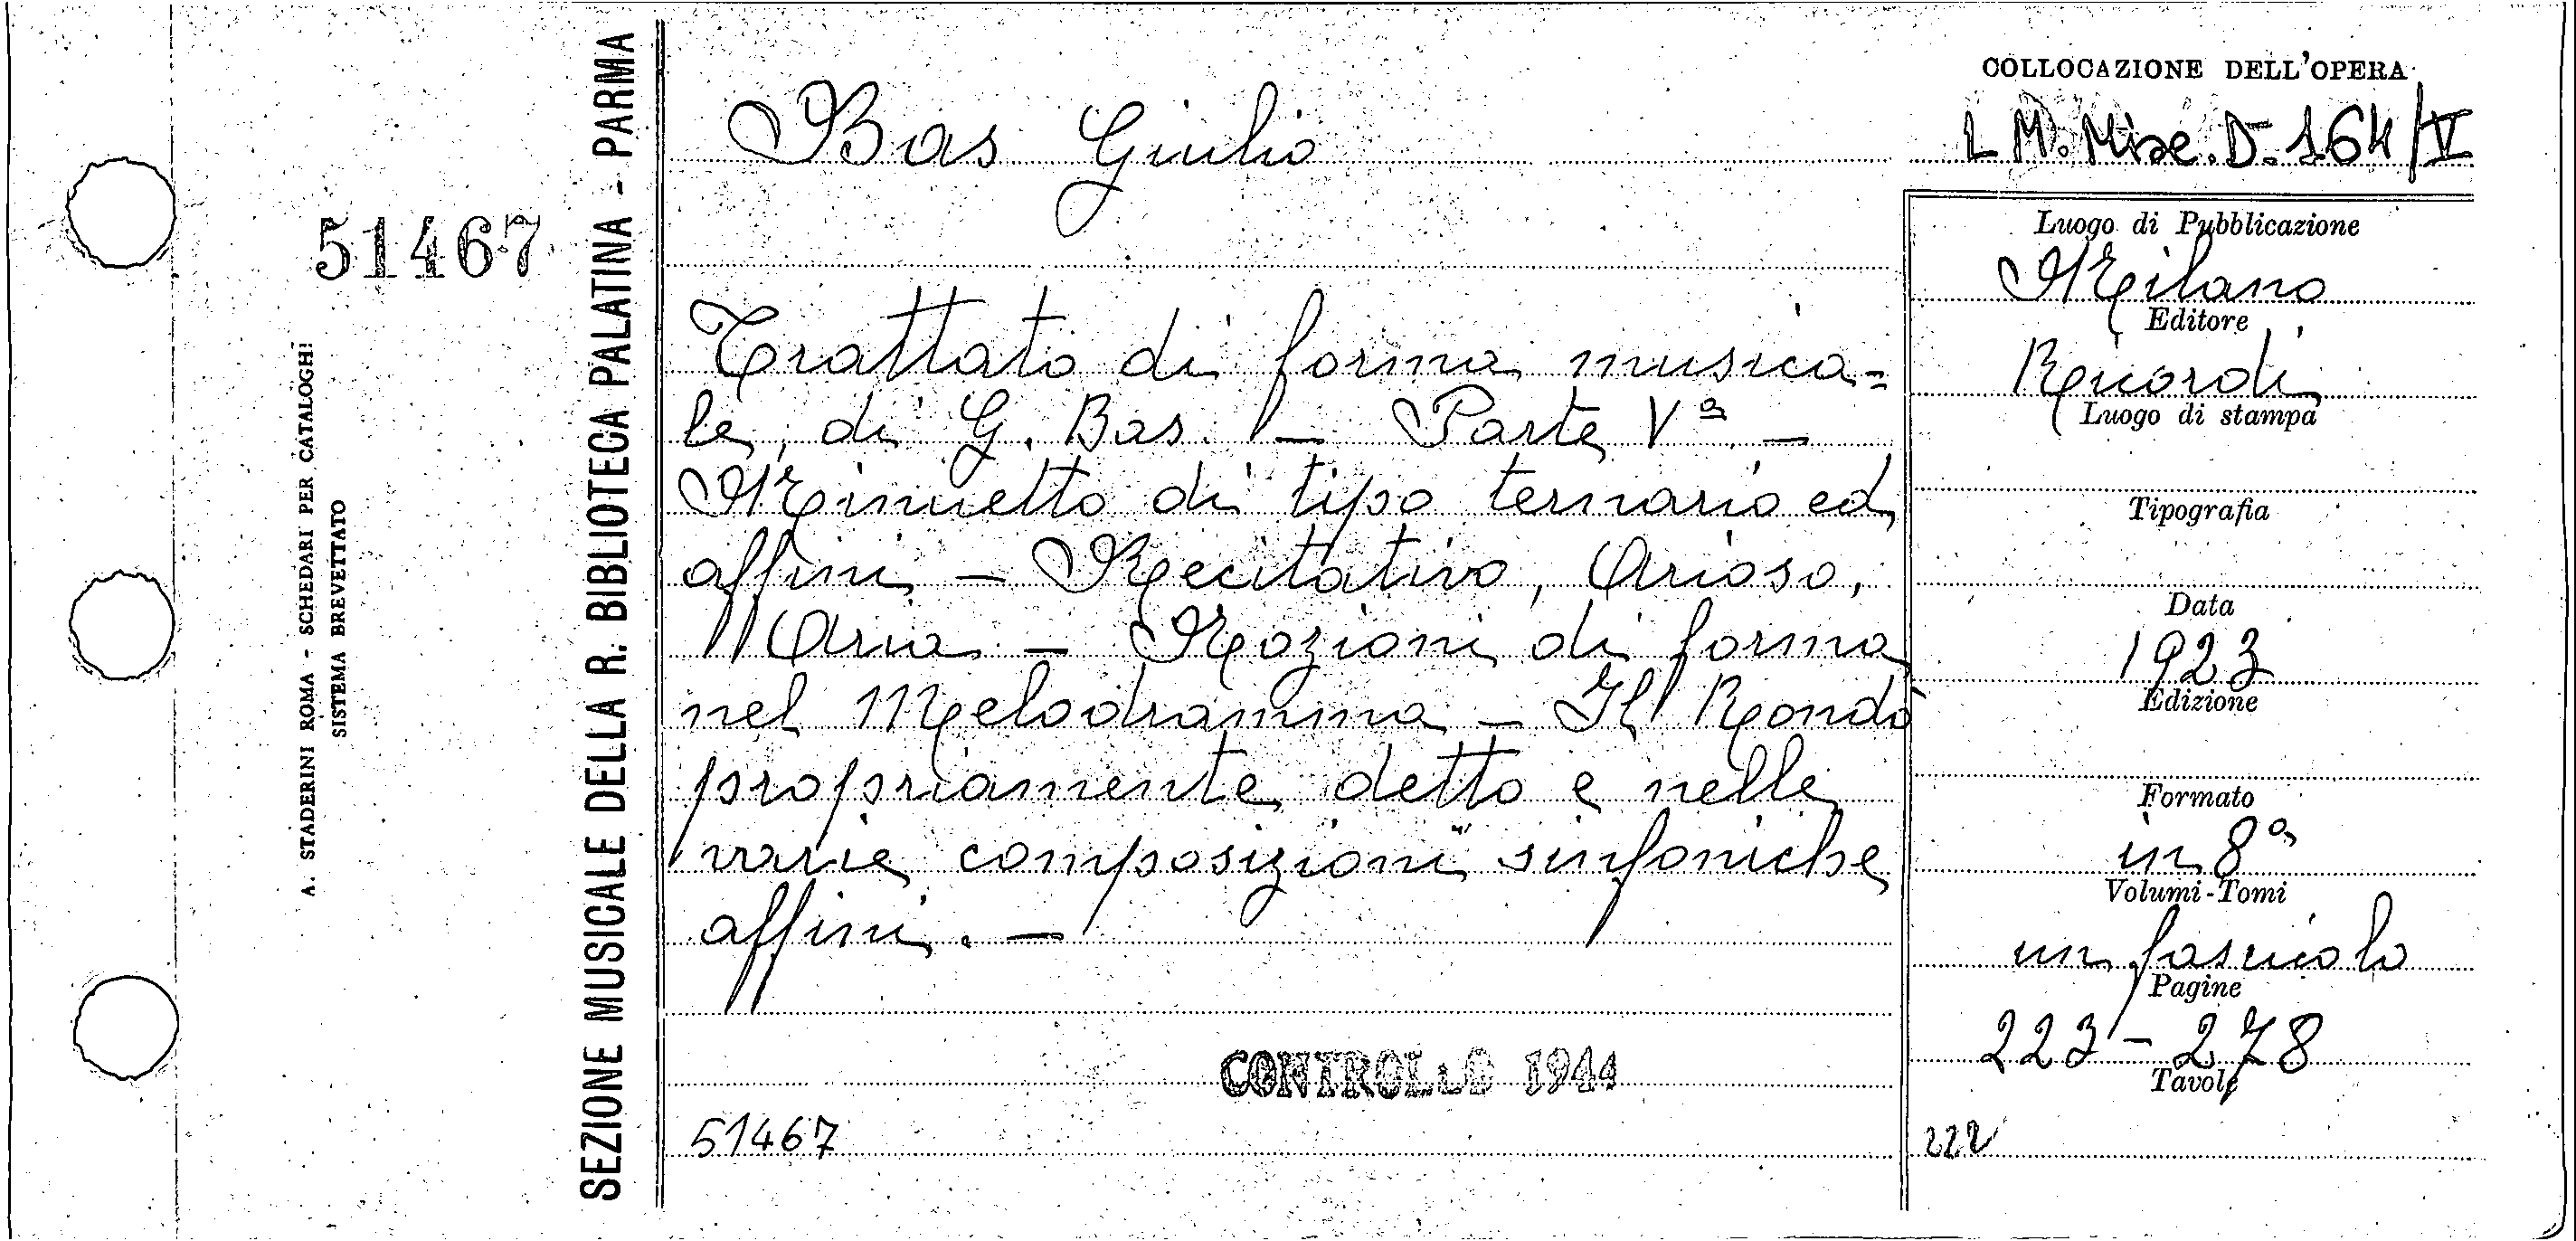 51467
A. STADERINI ROMA - SCHEDARI PER CATALOGHI
SISTEMA BREVETTATO
SEZIONE MUSICALE DELLA R. BIBLIOTECA PALATINA - PARMA
Bas Giulio
Trattato di forma musica=
le, di G. Bas. - Parte Vª -
Minuetto di tipo ternario ed
affini - Recitativo, Arioso,
Aria - Nozioni di forma
nel Melodramma - Il Rondò
propriamente detto e nelle
varie composizioni sinfoniche
affini. -
CONTROLLO 1944
51467
COLLOCAZIONE DELL'OPERA
L M. Misc. D. 164/V
Luogo di Pubblicazione
Milano
Editore
Ricordi
Luogo di stampa
Tipografia
Data
1923
Edizione
Formato
in 8º
Volumi-Tomi
un fascicolo
Pagine
223-278
Tavole